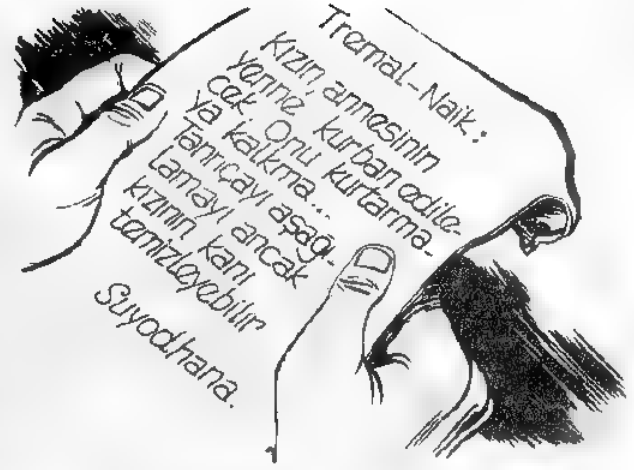 Tremal-Naik:
Kızın, annesinin
yerine kurban edile-
cek. Onu kurtarma-
ya kalkma...
Tanrıçayı aşağı-
lamayı ancak
kızının kanı
temizleyebilir
Suyodhana.